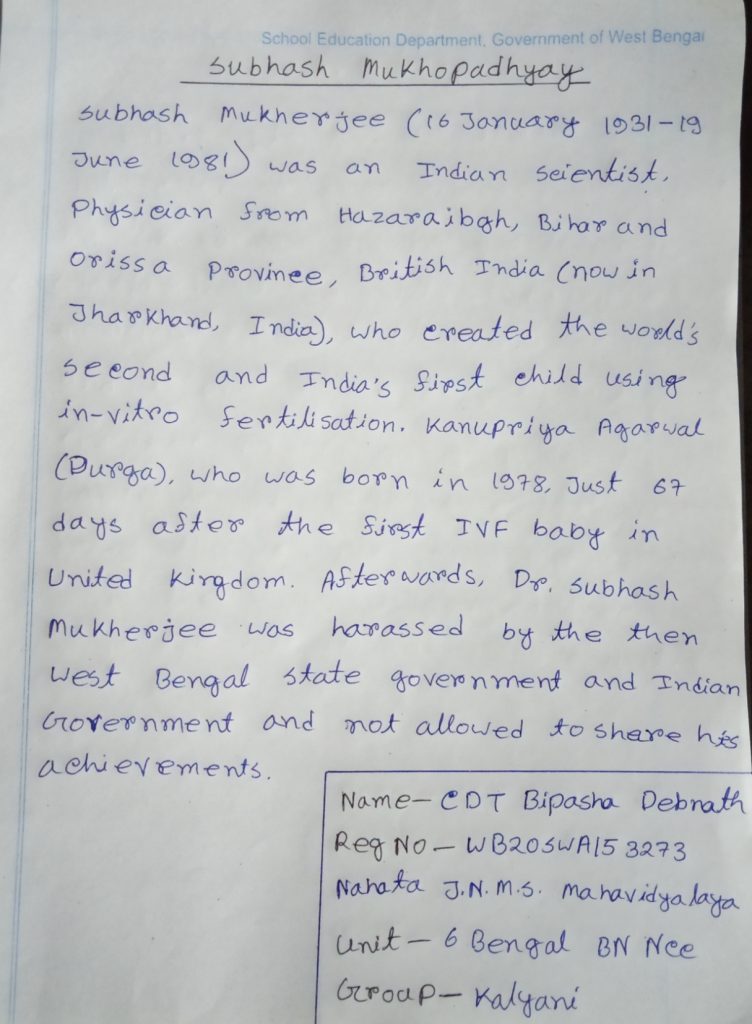 School Education Department, Government of West Bengal
Subhash Mukhopadhyay
Subhash Mukherjee (16 January 1931-19
June 1981) was an Indian scientist,
Physician from Hazaraibgh, Bihar and
Orissa Province, British India (now in
Jharkhand, India), who created the world's
second and India's first child using
in-vitro fertilisation. Kanupriya Agarwal
(Durga), who was born in 1978, Just 67
days after the first IVF baby in
United Kingdom. Afterwards, Dr. Subhash
Mukherjee was harassed by the then
West Bengal state government and Indian
Government and not allowed to share his
achievements.
Name- CDT Bipasha Debnath
Reg No - WB20SWA153273
Nahata J.N.M.S. Mahavidyalaya
Unit - 6 Bengal BN Ncc
Group- Kalyani